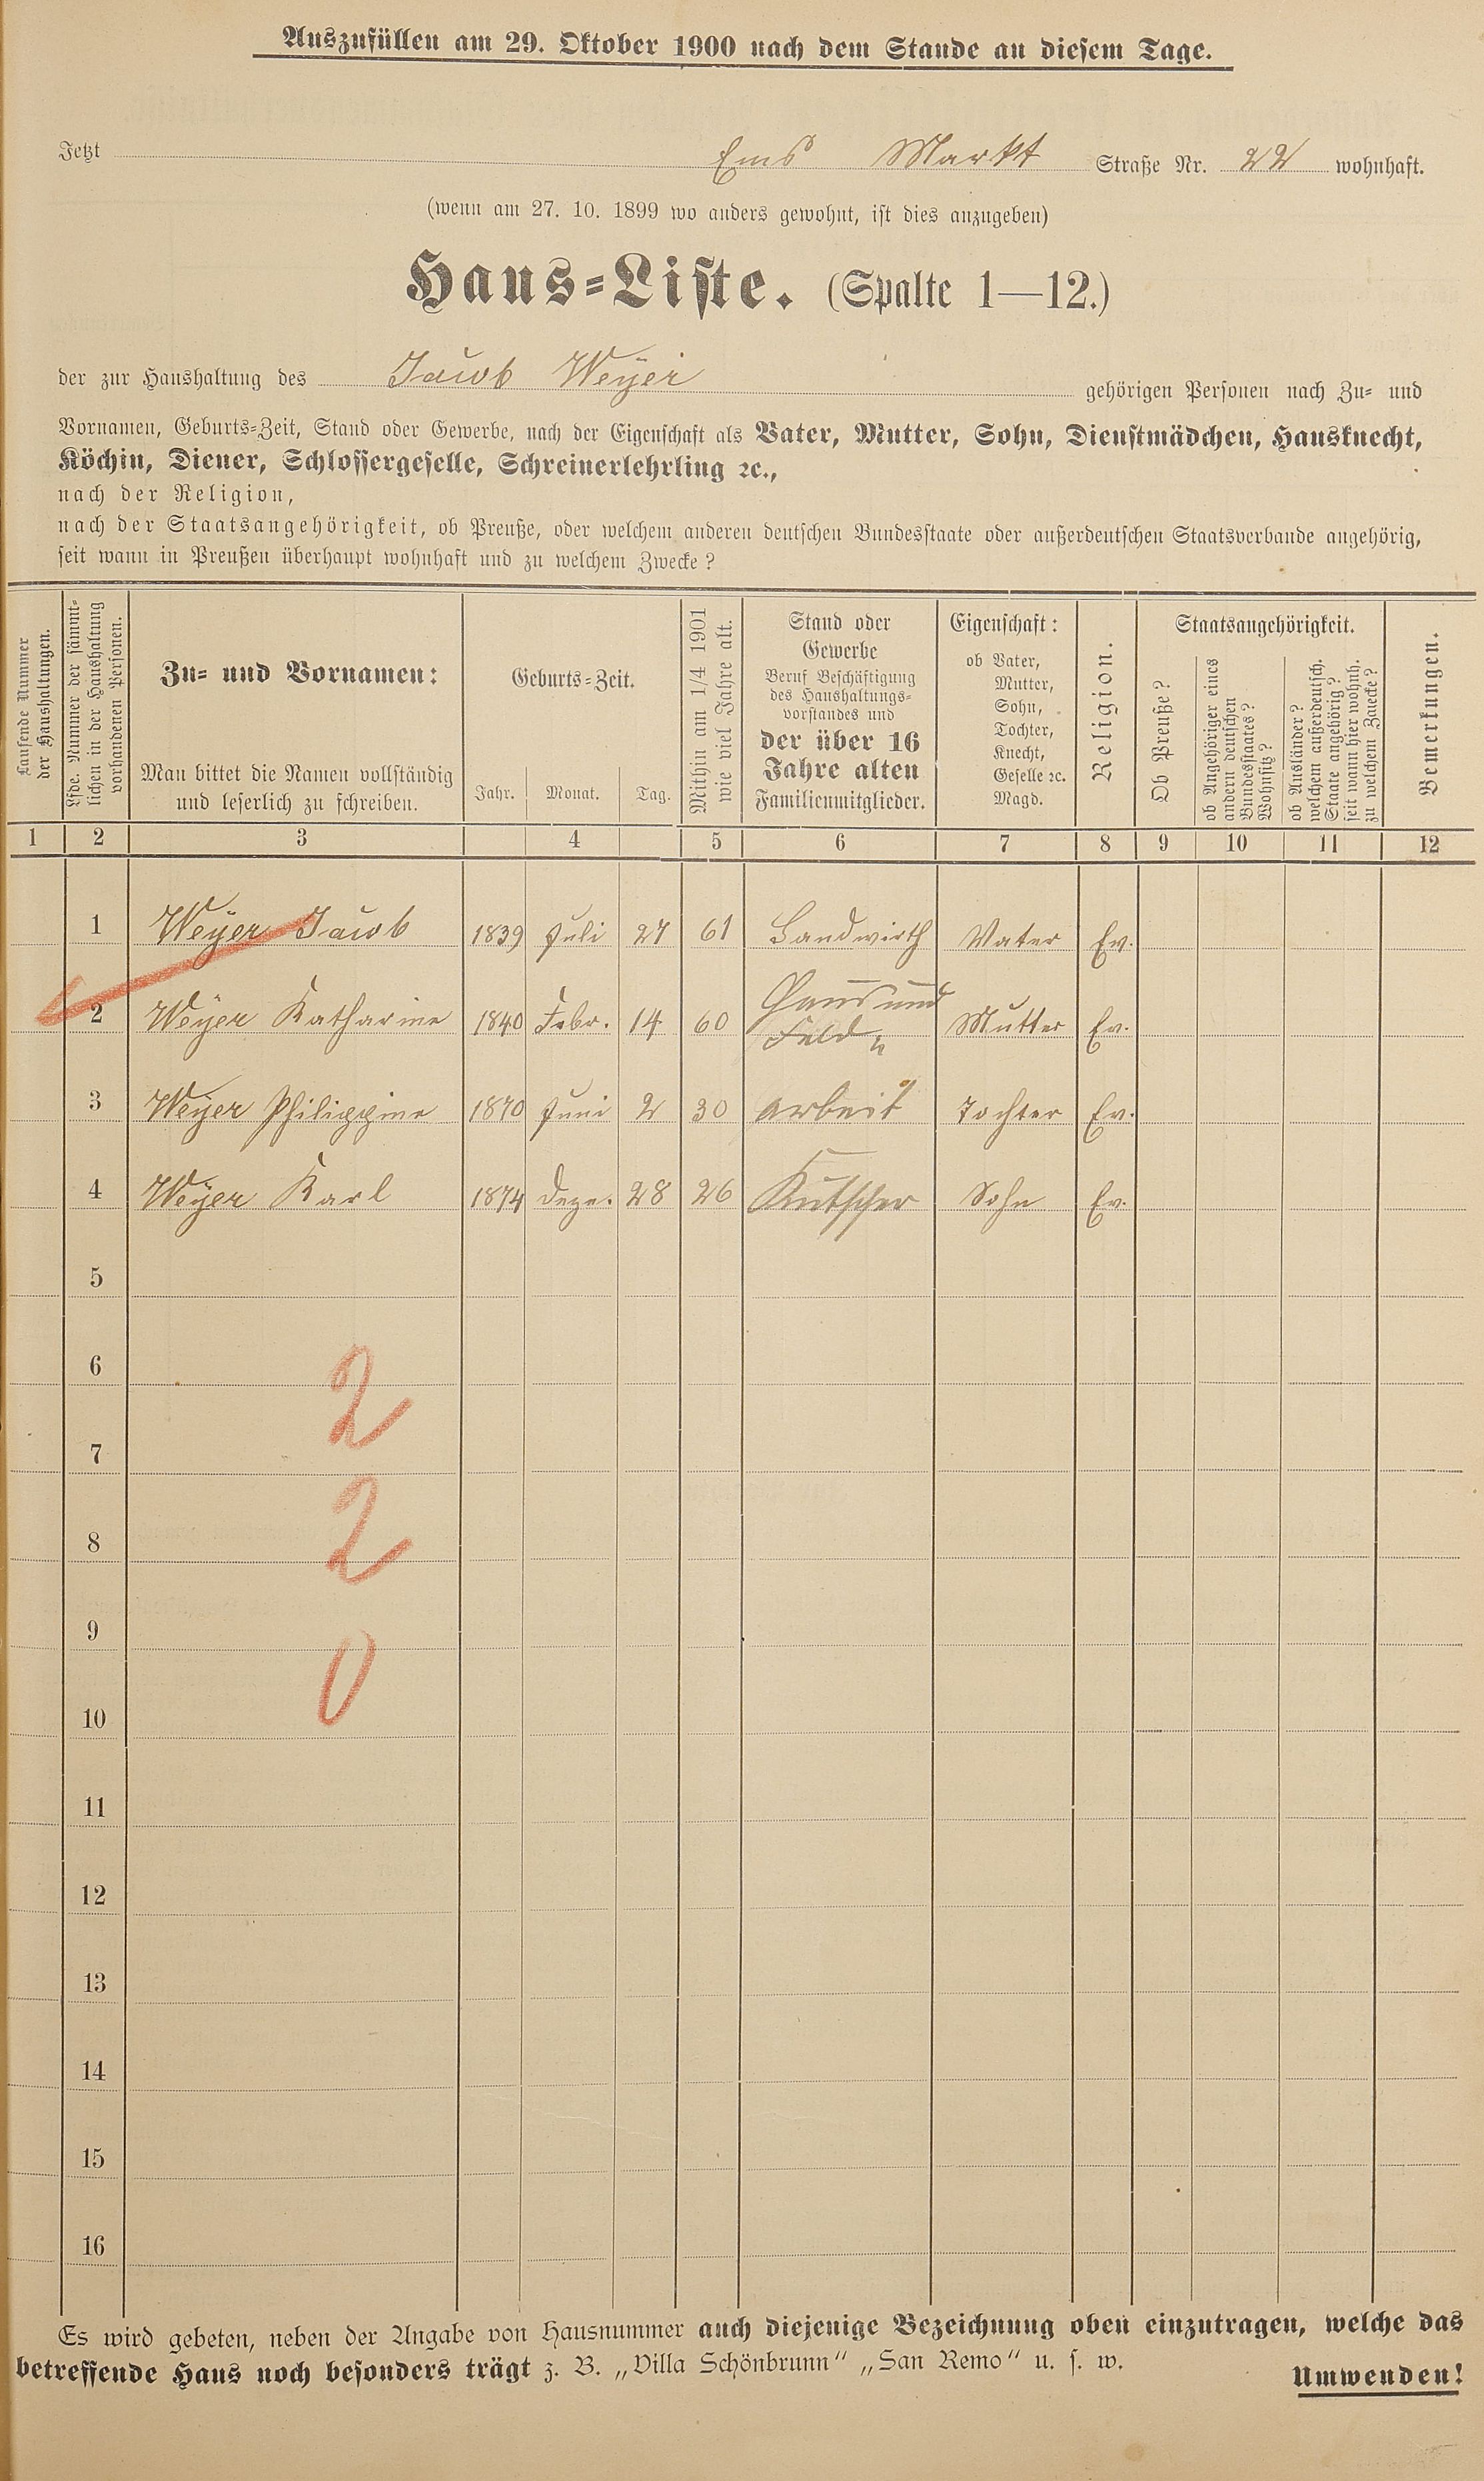 Auszufüllen am 29. Oktober 1900 nach dem Stande an diesem Tage.
Jetzt Ems Markt Straße Nr. 22 wohnhaft.
(wenn am 27. 10. 1899 wo anders gewohnt, ist dies anzugeben)
Haus-Liste. (Spalte 1—12.)
der zur Haushaltung des Jacob Weyer gehörigen Personen nach Zu- und
Vornamen, Geburts-Zeit, Stand oder Gewerbe, nach der Eigenschaft als Vater, Mutter, Sohn, Dienstmädchen, Hausknecht,
Köchin, Diener, Schlossergeselle, Schreinerlehrling ꝛc.,
nach der Religion,
nach der Staatsangehörigkeit, ob Preuße, oder welchem anderen deutschen Bundesstaate oder außerdeutschen Staatsverbande angehörig,
seit wann in Preußen überhaupt wohnhaft und zu welchem Zwecke?
Laufende Nummer
der Haushaltungen.
Lfde. Nummer der sämmt-
lichen in der Haushaltung
vorhandenen Personen.
Zu- und Vornamen:
Man bittet die Namen vollständig
und leserlich zu schreiben.
Geburts-Zeit.
Jahr. Monat. Tag.
Mithin am 1/4 1901
wie viel Jahre alt.
Stand oder
Gewerbe
Beruf Beschäftigung
des Haushaltungs-
vorstandes und
der über 16
Jahre alten
Familienmitglieder.
Eigenschaft:
ob Vater,
Mutter,
Sohn,
Tochter,
Knecht,
Geselle ꝛc.
Magd.
Religion.
Staatsangehörigkeit.
Ob Preuße?
ob Angehöriger eines
andern deutschen
Bundesstaates?
Wohnsitz?
ob Ausländer?
welchem außerdeutsch.
Staate angehörig?
seit wann hier wohnh.
zu welchem Zwecke?
Bemerkungen.
1 2 3 4 5 6 7 8 9 10 11 12
1 Weyer Jacob 1839 Juli 27 61 Landwirth Vater Ev.
2 Weyer Katharine 1840 Febr. 14 60 Haus und Feld Mutter Ev.
3 Weyer Philippine 1870 Juni 2 30 arbeit Tochter Ev.
4 Weyer Karl 1874 Deze. 28 26 Kutscher Sohn Ev.
5
6
2
7
8
2
9
0
10
11
12
13
14
15
16
Es wird gebeten, neben der Angabe von Hausnummer auch diejenige Bezeichnung oben einzutragen, welche das
betreffende Haus noch besonders trägt z. B. „Villa Schönbrunn“ „San Remo“ u. s. w.
Umwenden!